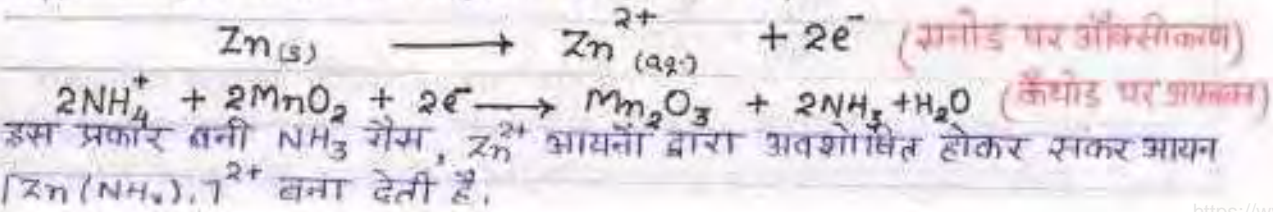 Zn(s) ⟶ Zn²⁺(aq.) + 2e⁻ (एनोड पर ऑक्सीकरण)
2NH₄⁺ + 2MnO₂ + 2e⁻ ⟶ Mn₂O₃ + 2NH₃ + H₂O (कैथोड पर अपचयन)
इस प्रकार बनी NH₃ गैस, Zn²⁺ आयनों द्वारा अवशोषित होकर संकर आयन
[Zn(NH₃)₄]²⁺ बना देती है।